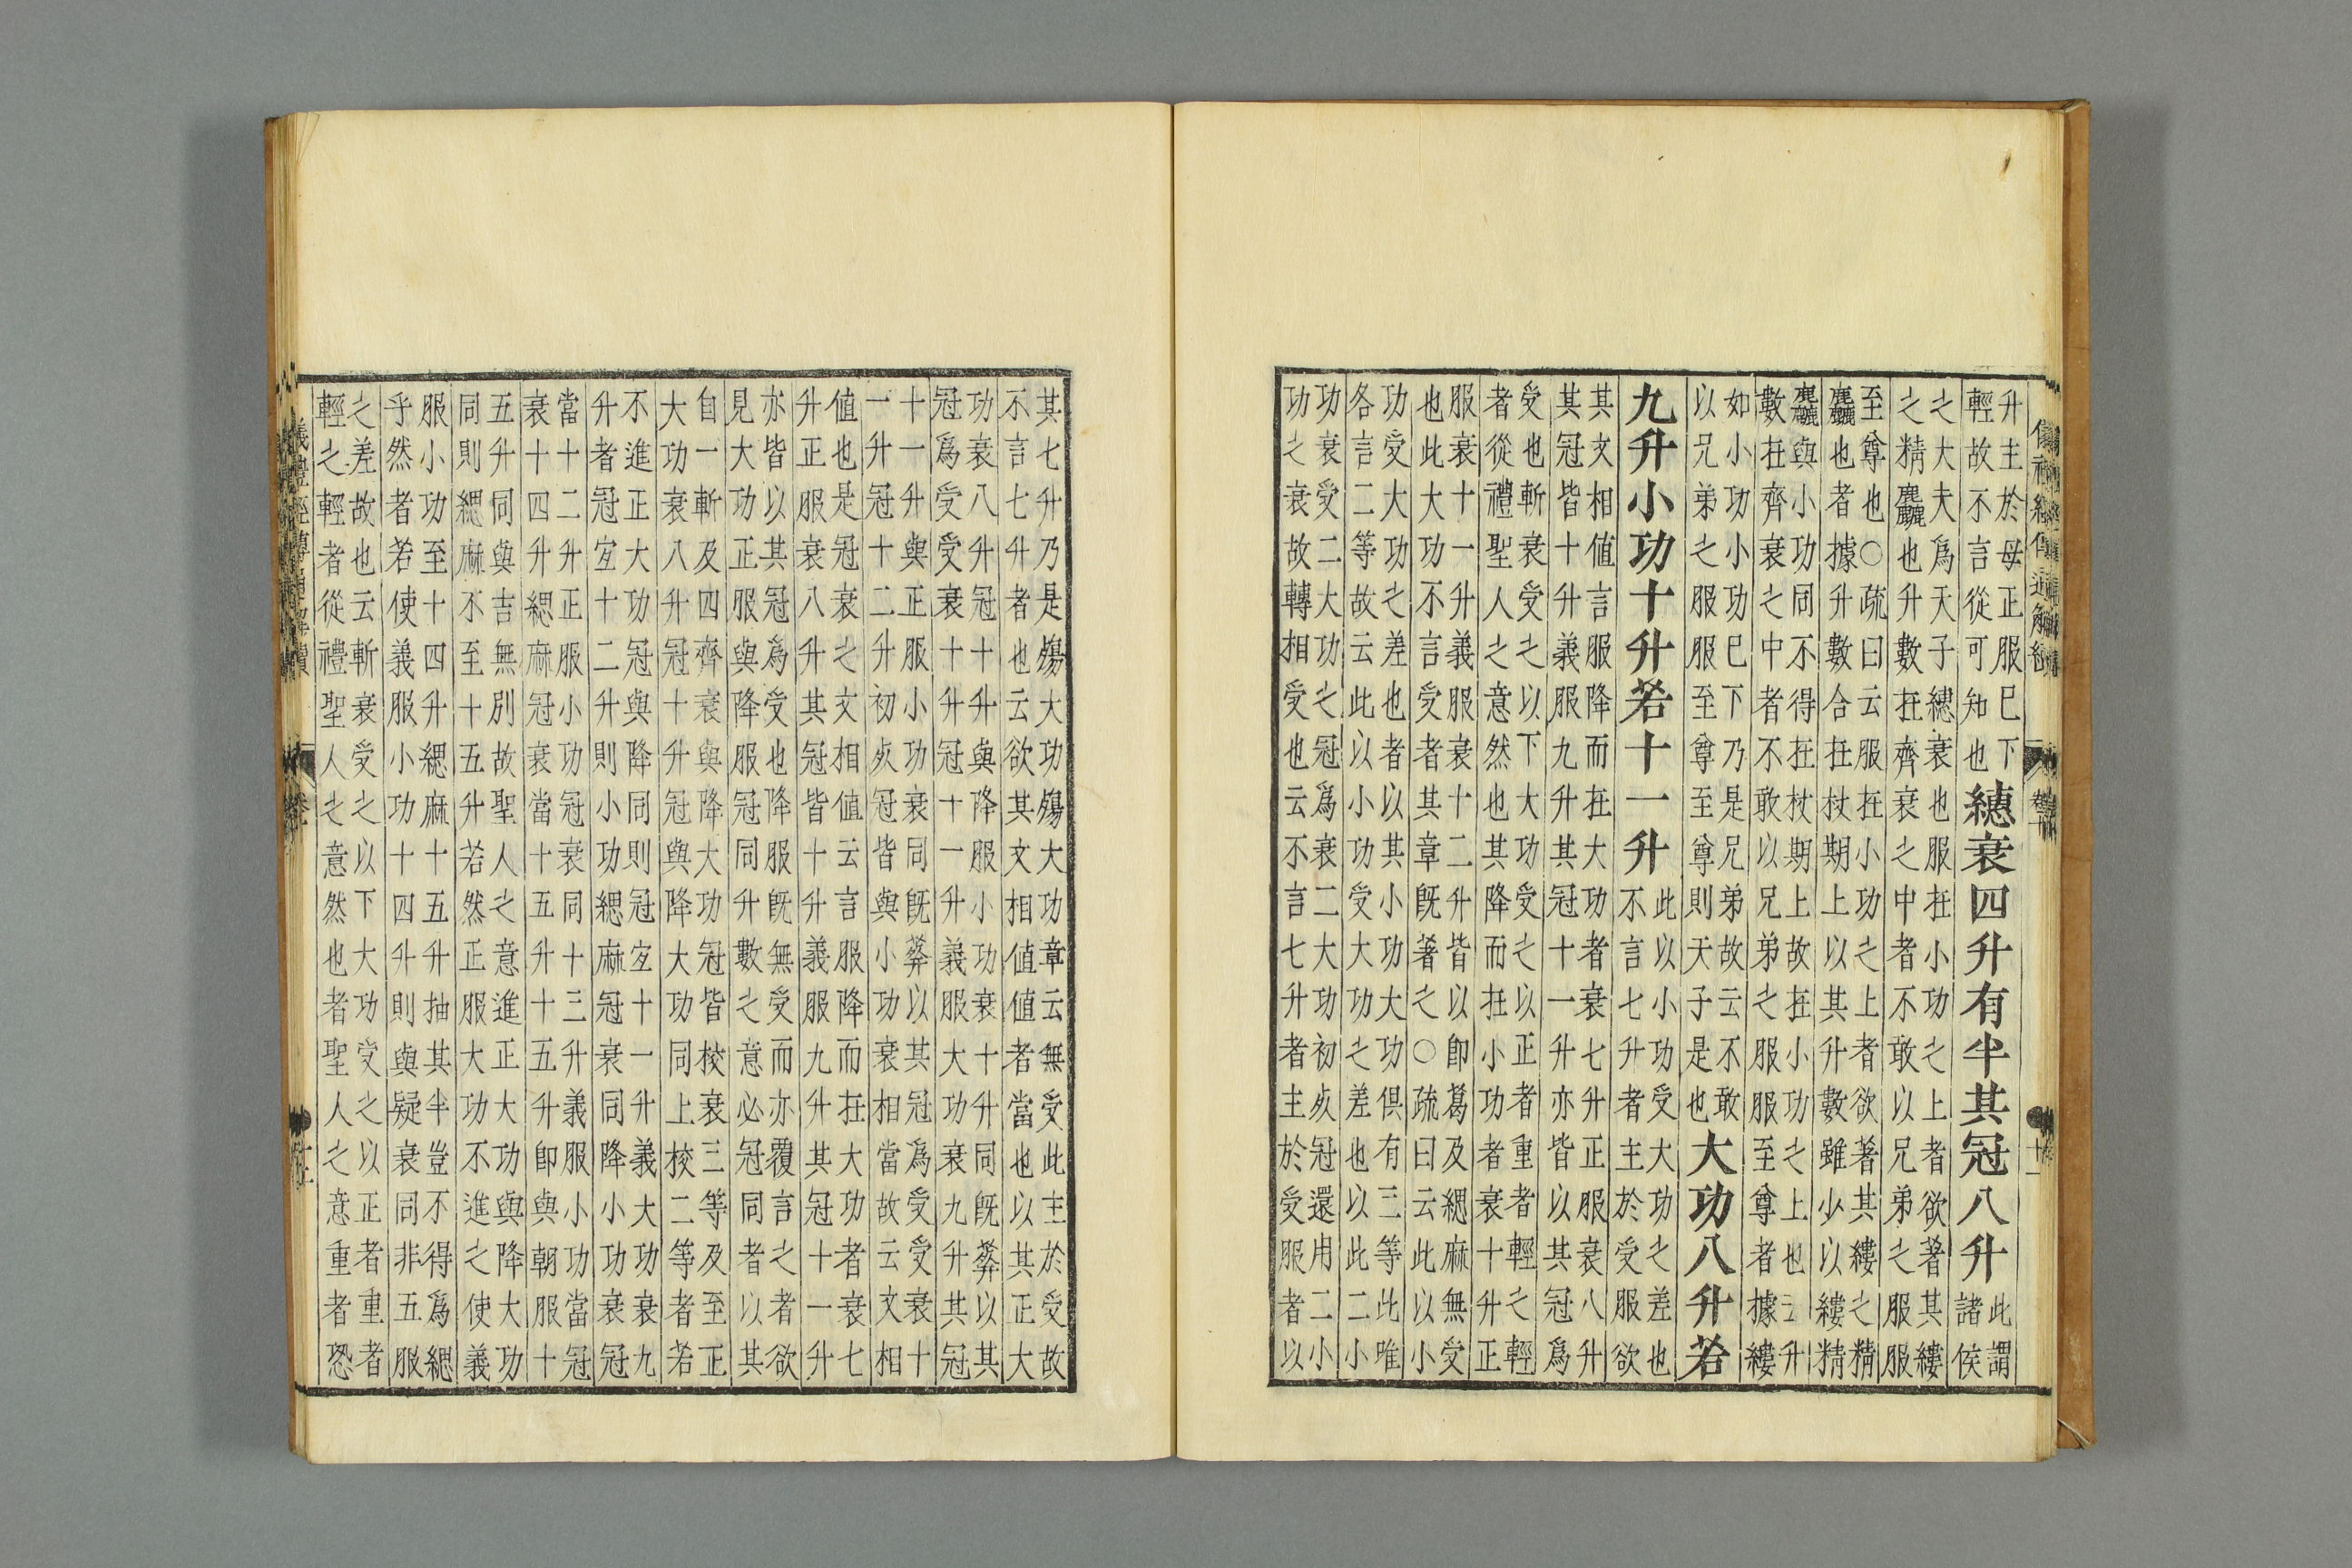 升主於母正服巳下
輕故不言從可知也
繐衰四升有半其冠八升
此謂
諸侯
之大夫爲天子繐衰也服在小功之上者欲著其縷
之精麤也升數在齊衰之中者不敢以兄弟之服服
至尊也○疏曰云服在小功之上者欲著其縷之精
麤也者據升數合在杖期上以其升數雖少以縷精
麤與小功同不得在杖期上故在小功之上也云升
數在齊衰之中者不敢以兄弟之服服至尊者據縷
如小功小功巳下乃是兄弟故云不敢
以兄弟之服服至尊至尊則天子是也
大功八升若
九升小功十升若十一升
此以小功受大功之差也
不言七升者主於受服欲
其文相值言服降而在大功者衰七升正服衰八升
其冠皆十升義服九升其冠十一升亦皆以其冠爲
受也斬衰受之以下大功受之以正者重者輕之輕
者從禮聖人之意然也其降而在小功者衰十升正
服衰十一升義服衰十二升皆以卽葛及緦麻無受
也此大功不言受者其章旣著之○疏曰云此以小
功受大功之差也者以其小功大功俱有三等此唯
各言二等故云此以小功受大功之差也以此二小
功衰受二大功之冠爲衰二大功初死冠還用二小
功之衰故轉相受也云不言七升者主於受服者以
其七升乃是殤大功殤大功章云無受此主於受故
不言七升者也云欲其文相值值者當也以其正大
功衰八升冠十升與降服小功衰十升同旣葬以其
冠爲受受衰十升冠十一升義服大功衰九升其冠
十一升與正服小功衰同旣葬以其冠爲受受衰十
一升冠十二升初死冠皆與小功衰相當故云文相
值也是冠衰之文相值云言服降而在大功者衰七
升正服衰八升其冠皆十升義服九升其冠十一升
亦皆以其冠爲受也降服旣無受而亦覆言之者欲
見大功正服與降服冠同升數之意必冠同者以其
自一斬及四齊衰與降大功冠皆校衰三等及至正
大功衰八升冠十升冠與降大功同上校二等者若
不進正大功冠與降同則冠宜十一升義大功衰九
升者冠宜十二升則小功緦麻冠衰同降小功衰冠
當十二升正服小功冠衰同十三升義服小功當冠
衰十四升緦麻冠衰當十五升十五升卽與朝服十
五升同與吉無別故聖人之意進正大功與降大功
同則緦麻不至十五升若然正服大功不進之使義
服小功至十四升緦麻十五升抽其半豈不得爲緦
乎然者若使義服小功十四升則與疑衰同非五服
之差故也云斬衰受之以下大功受之以正者重者
輕之輕者從禮聖人之意然也者聖人之意重者恐
儀禮經傳通解續